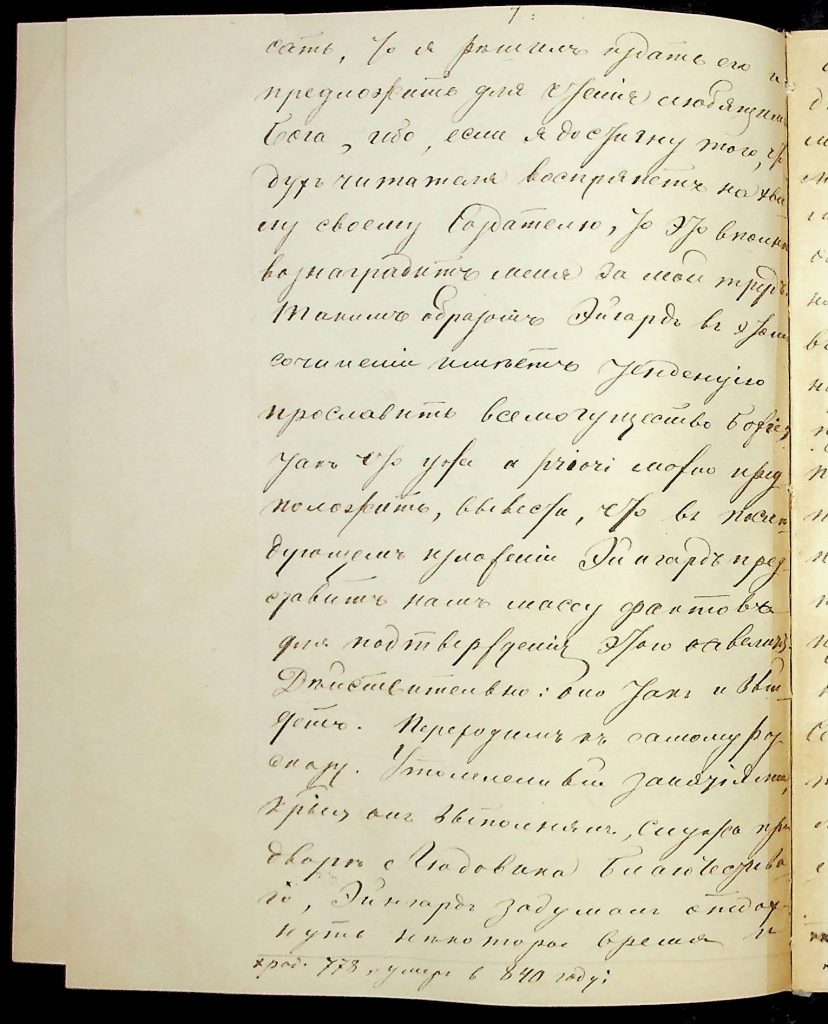 7.
сать, что я решилъ издать его и
предложить для чтенія любящимъ
Бога, ибо, если я достигну того, что
духъ читателя воспрянетъ на хва-
лу своему Создателю, то это вполнѣ
вознаградитъ меня за мой трудъ.
Такимъ образомъ Эйнгардъ въ этомъ
сочиненіи имѣетъ тенденцію
прославить всемогущество Божіе,
такъ что уже a priori можно пред
положить, вывести, что въ послѣ-
дующемъ изложеніи Эйнгардъ пред-
ставитъ намъ массу фактовъ
для подтвержденія этого
Дѣйствительно: оно такъ и вый-
детъ. Переходимъ къ самому раз-
сказу. Утомленный занятіями,
которыя онъ выполнялъ, служа при
дворѣ Людовика Благочестива-
го, Эйнгардъ задумалъ отдох-
нуть некоторое время и
х род. 778, умеръ в 840 году: